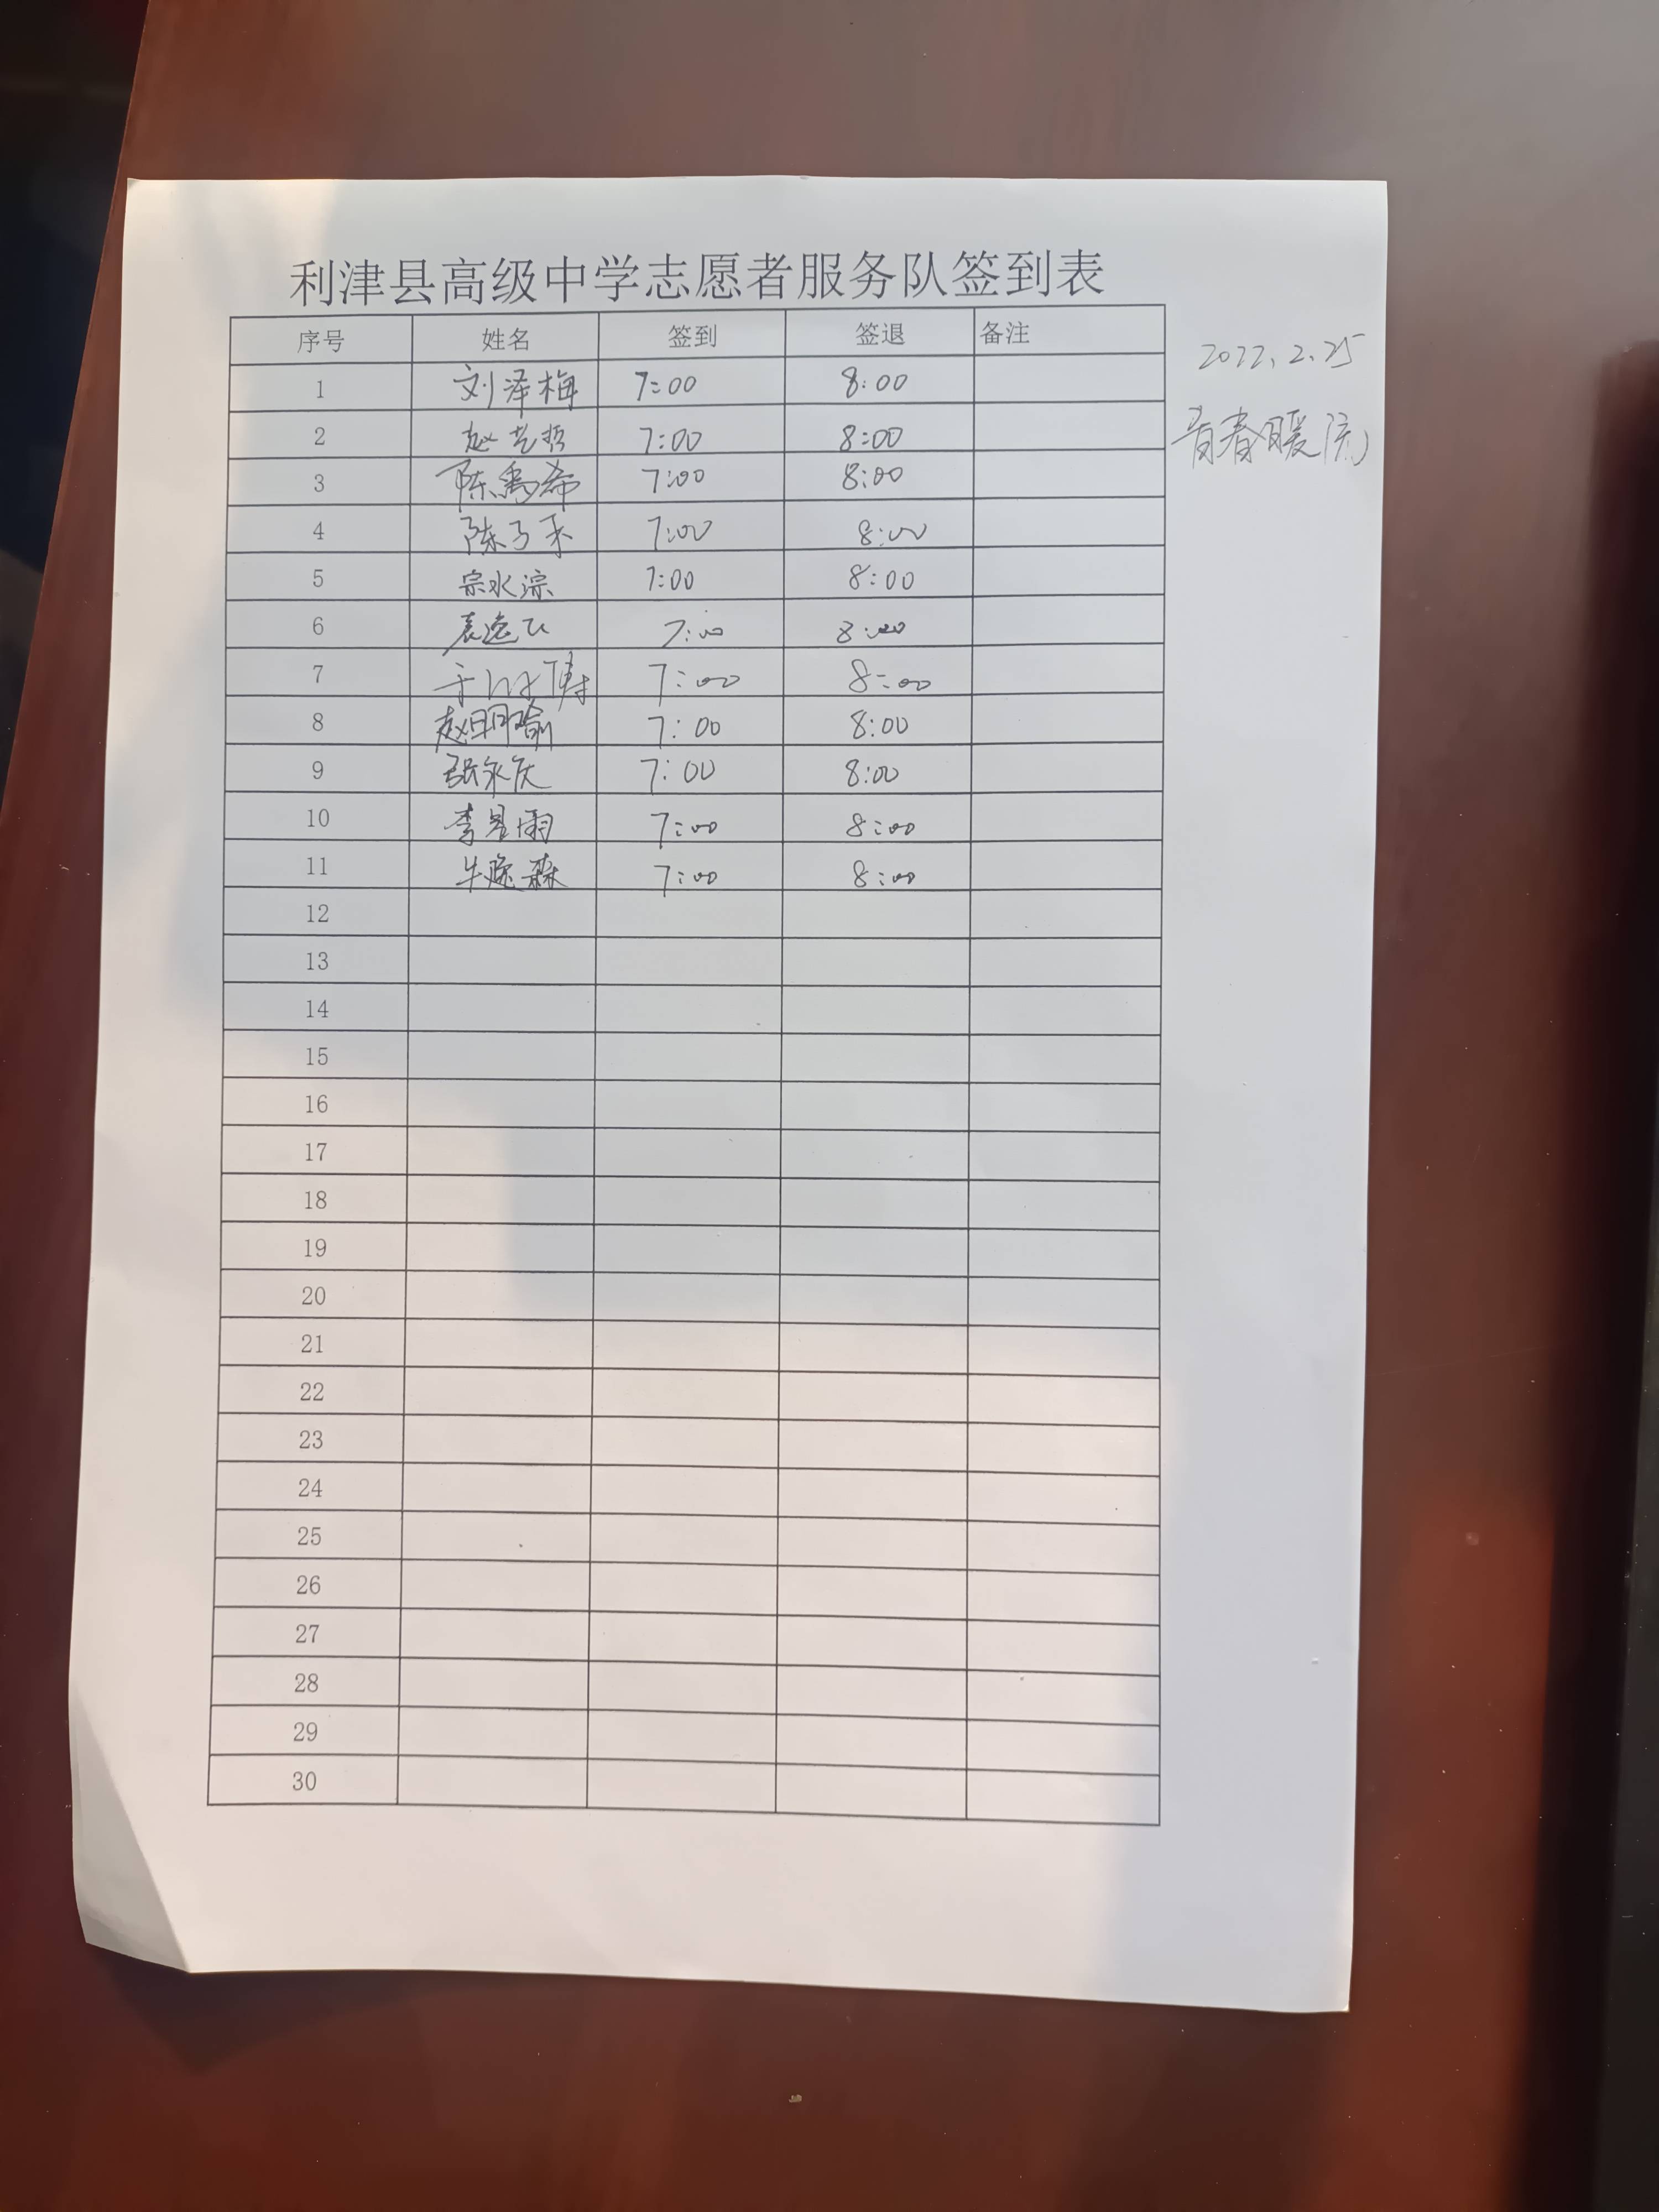 利津县高级中学志愿者服务队签到表
序号 姓名 签到 签退 备注
2022.2.25
青春暖流
1 刘泽梅 7:00 8:00
2 赵艺哲 7:00 8:00
3 陈禹希 7:00 8:00
4 陈子禾 7:00 8:00
5 宗水淙 7:00 8:00
6 袁逸飞 7:00 8:00
7 于 博 7:00 8:00
8 赵明瑜 7:00 8:00
9 张永庆 7:00 8:00
10 李昱雨 7:00 8:00
11 牛 森 7:00 8:00
12
13
14
15
16
17
18
19
20
21
22
23
24
25
26
27
28
29
30